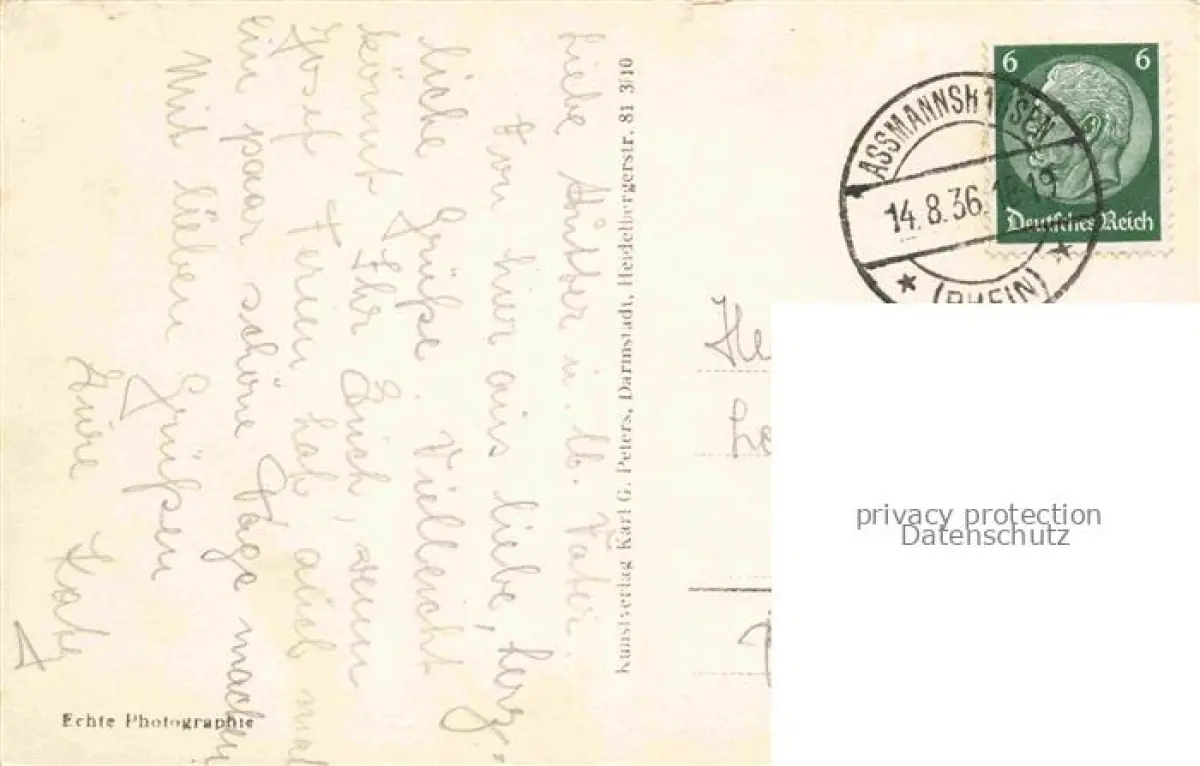 Liebe Mutter u. lb. Vater!
Von hier aus liebe, herz-
liche Grüße. Vielleicht
könnt Ihr Euch, wenn
Josef Ferien hat auch mal
ein paar schöne Tage machen.
Mit lieben Grüßen
Eure Kate
Echte Photographie
Kunstverlag Karl G. Peters, Darmstadt, Heidelbergerstr. 81 3/10
6 6
Deutsches Reich
ASSMANNSHAUSEN
14.8.36. 18-19
(RHEIN)
He
privacy protection
Datenschutz